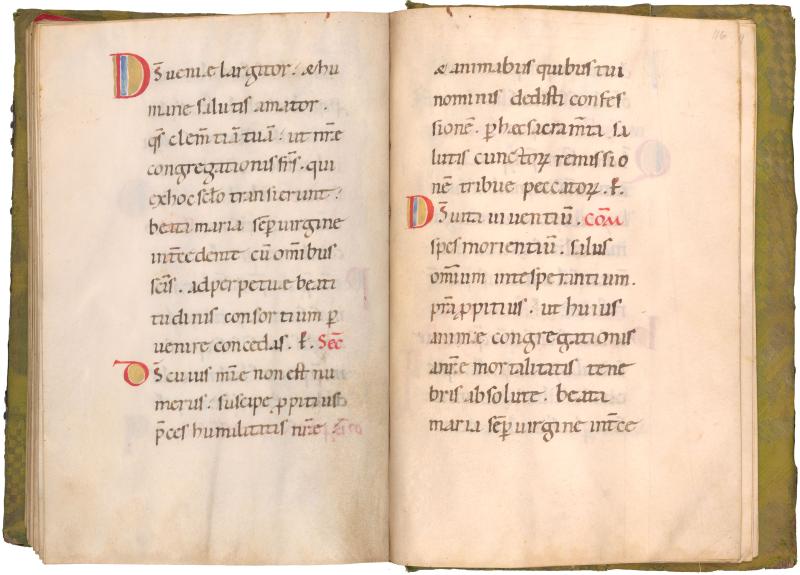 D̅S ueniae largitor. & hu
manae salutis amator.
qs̅ clem̅tiā tuā. ut nr̅ae
congregationis frs̅. qui
ex hoc scło transierunt.
beata maria semp̱ uirgine
int̅cedente cū om̅ibus
sc̅is. ad perpetuae beati
tudinis consortium p̱
uenire concedas. ꝑ. Sec̅
D̅S cuius mi̅ae non est nu
merus. suscipe ꝓpitius
p̅ces humilitatis nr̅ae.
& animabus quibus tui
nominis dedisti confes
sionē. ꝑ haec sacram̅ta sa
lutis cunctoꝝ remissio
nē tribue peccatoꝝ. ꝑ.
D̅S uita uiuentiū. COM̅
spes morientiū. salus
omium in te sperantium.
pr̅a ꝓpitius. ut huius
animae congregationis
a nr̅ae mortalitatis tene
bris absolute. beata
maria semꝑ uirgine int̅ce